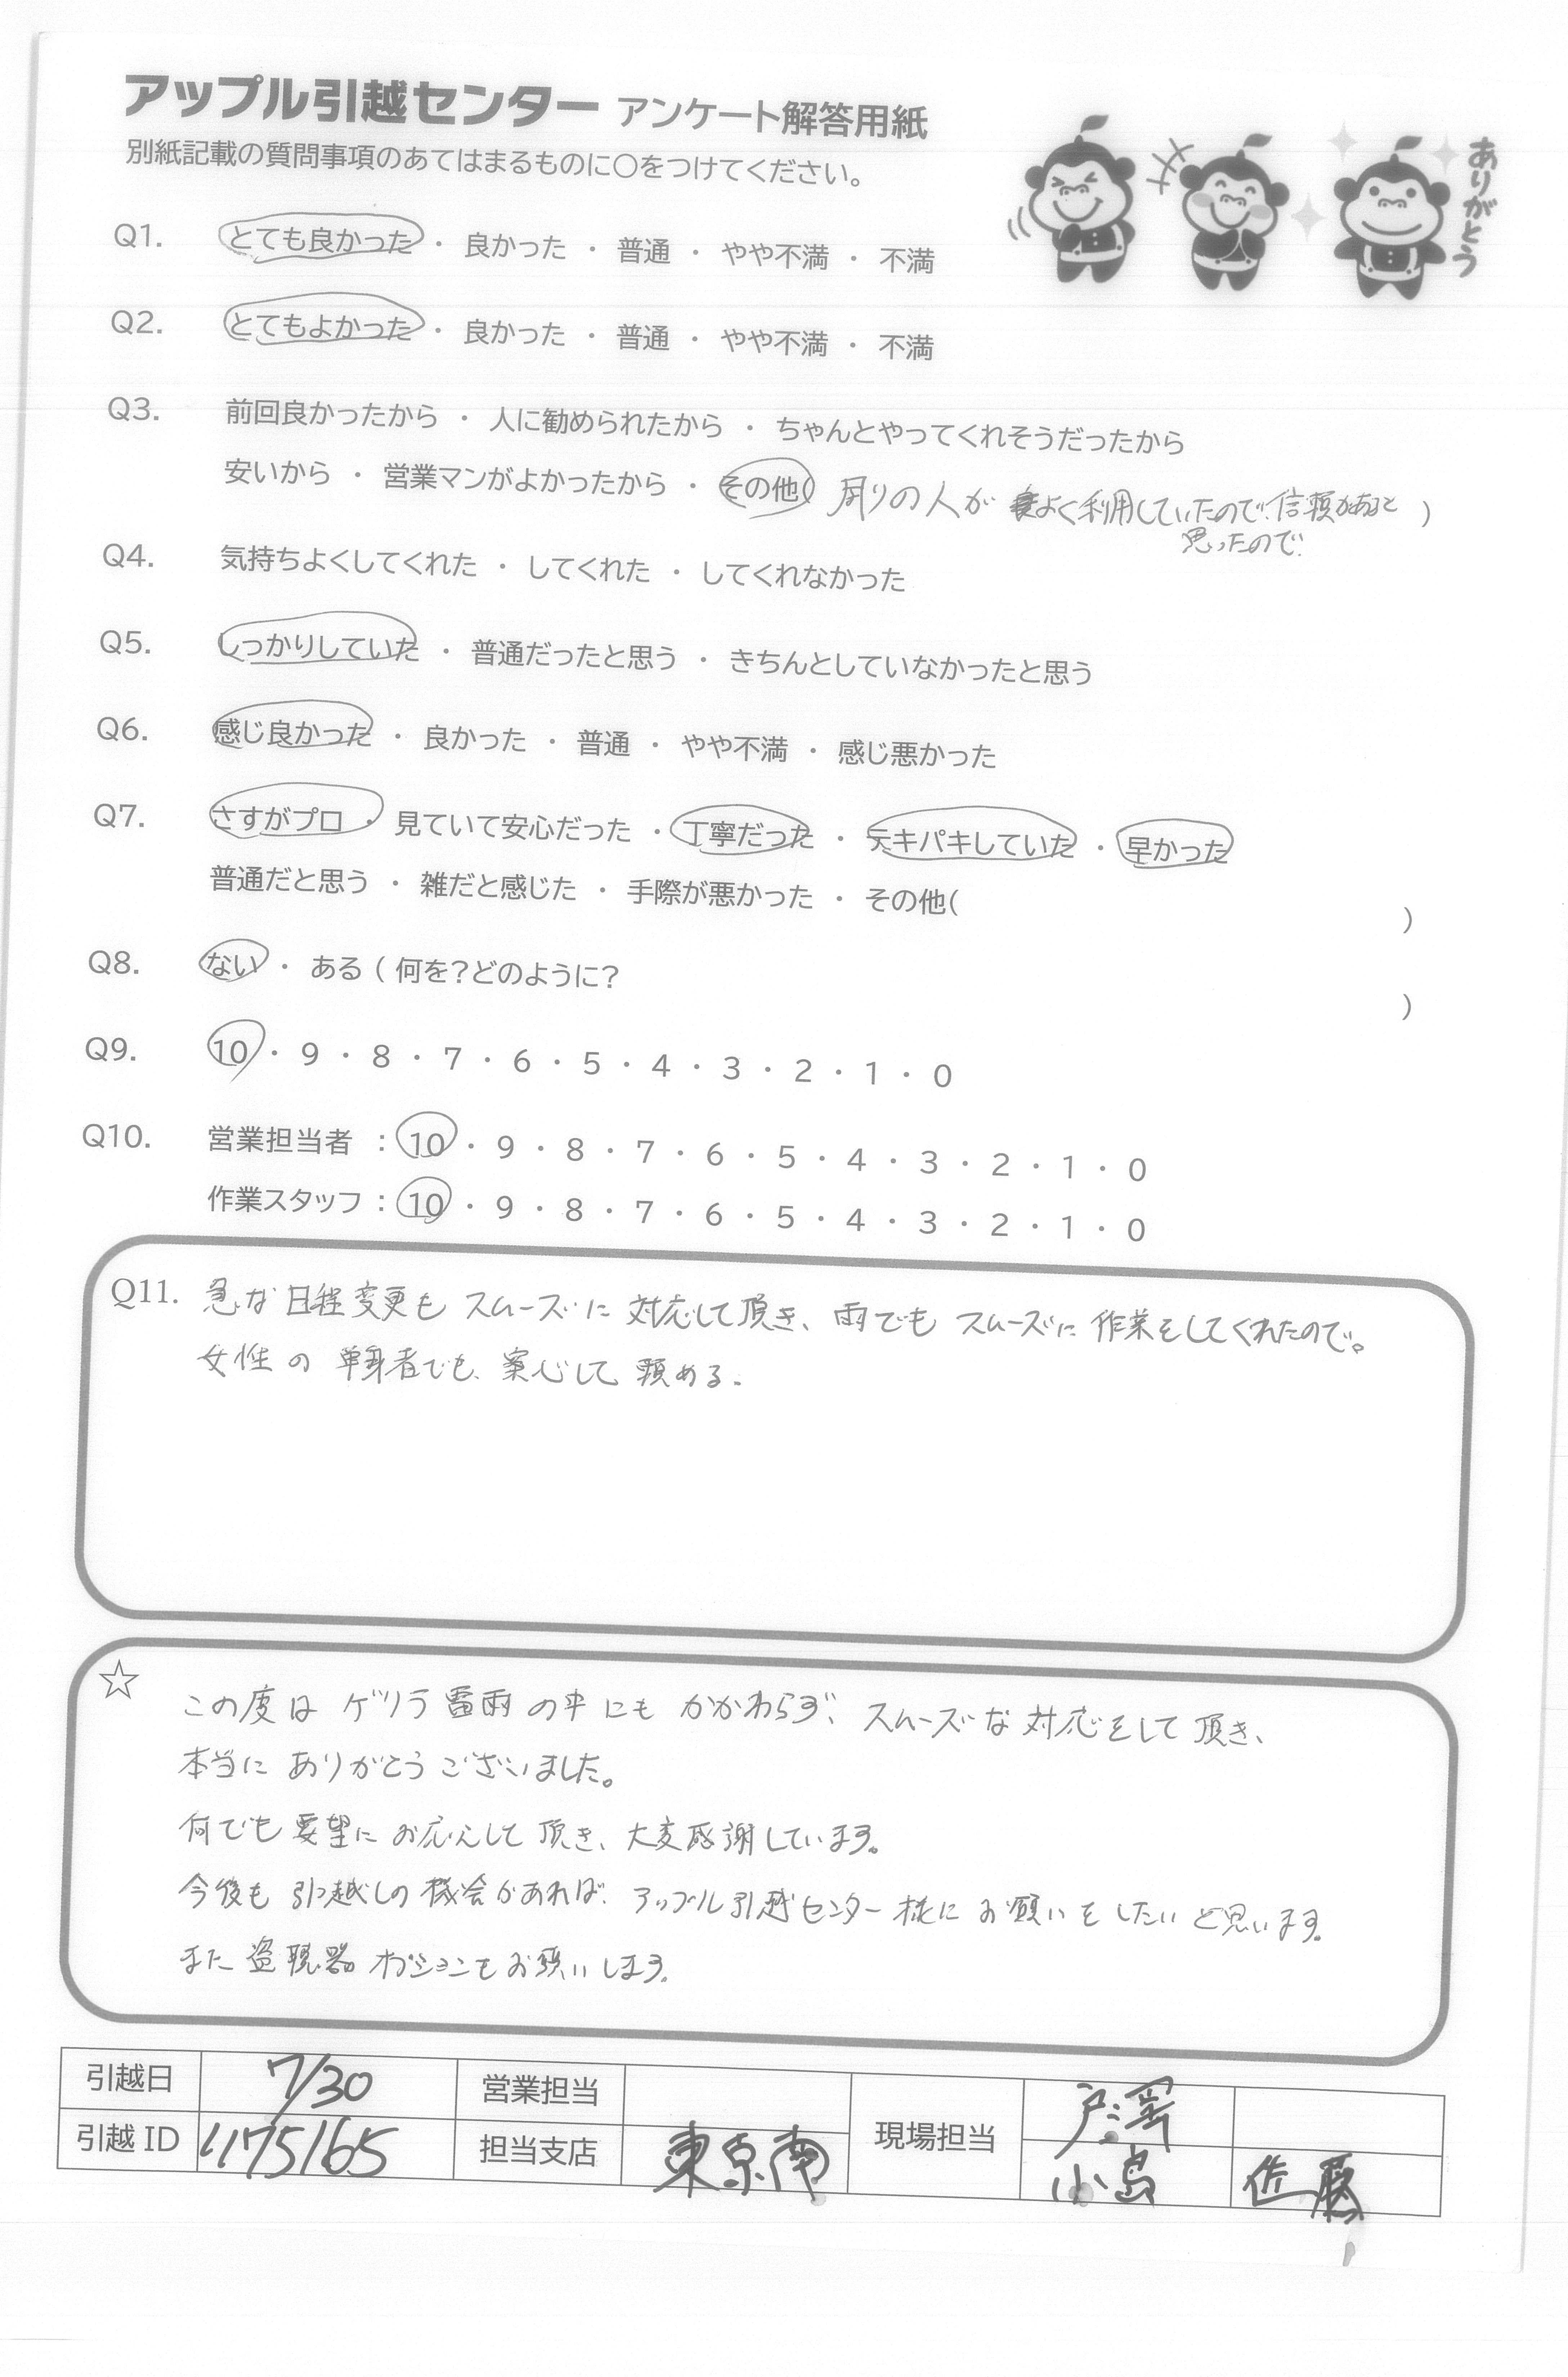 アップル引越センター アンケート解答用紙
別紙記載の質問事項のあてはまるものに○をつけてください。
ありがとう
Q1. とても良かった ・ 良かった ・ 普通 ・ やや不満 ・ 不満
Q2. とてもよかった ・ 良かった ・ 普通 ・ やや不満 ・ 不満
Q3. 前回良かったから ・ 人に勧められたから ・ ちゃんとやってくれそうだったから
安いから ・ 営業マンがよかったから ・ その他( 周りの人が よく利用していたので信頼があると )
思ったので
Q4. 気持ちよくしてくれた ・ してくれた ・ してくれなかった
Q5. しっかりしていた ・ 普通だったと思う ・ きちんとしていなかったと思う
Q6. 感じ良かった ・ 良かった ・ 普通 ・ やや不満 ・ 感じ悪かった
Q7. さすがプロ ・ 見ていて安心だった ・ 丁寧だった ・ テキパキしていた ・ 早かった
普通だと思う ・ 雑だと感じた ・ 手際が悪かった ・ その他( )
Q8. ない ・ ある ( 何を?どのように? )
Q9. 10 ・ 9 ・ 8 ・ 7 ・ 6 ・ 5 ・ 4 ・ 3 ・ 2 ・ 1 ・ 0
Q10. 営業担当者 : 10 ・ 9 ・ 8 ・ 7 ・ 6 ・ 5 ・ 4 ・ 3 ・ 2 ・ 1 ・ 0
作業スタッフ : 10 ・ 9 ・ 8 ・ 7 ・ 6 ・ 5 ・ 4 ・ 3 ・ 2 ・ 1 ・ 0
Q11. 急な日程変更も スムーズに 対応して頂き、雨でも スムーズに 作業をしてくれたので。
女性の 単身者でも、安心して 頼める。
☆ この度は ゲリラ雷雨の中にも かかわらず、スムーズな 対応をして 頂き、
本当に ありがとう ございました。
何でも 要望に お応えして 頂き、大変感謝しています。
今後も 引っ越しの 機会があれば、アップル引越センター様に お願いを したいと思います。
また 盗聴器 オプションも お願いします。
引越日 7/30 営業担当 現場担当 戸澤
引越 ID 1175165 担当支店 東京南 小島 佐藤